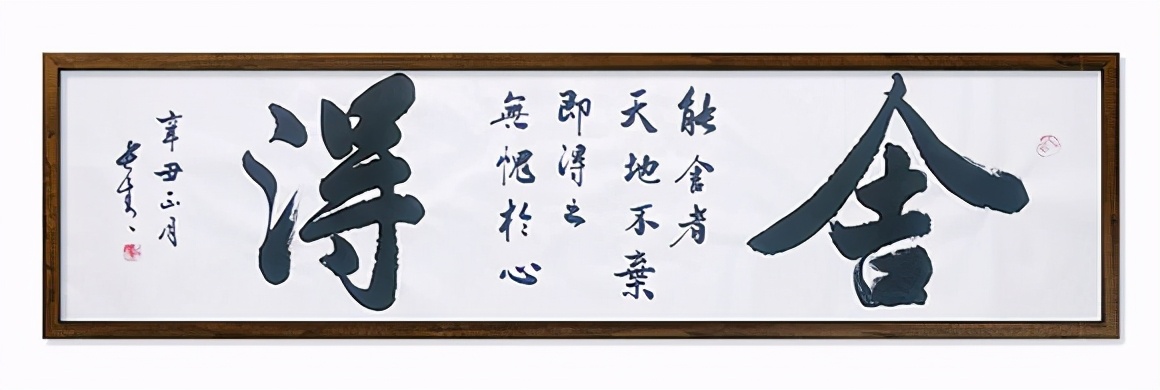 舍
能舍者
天地不棄
即得之
無愧於心
得
辛丑正月